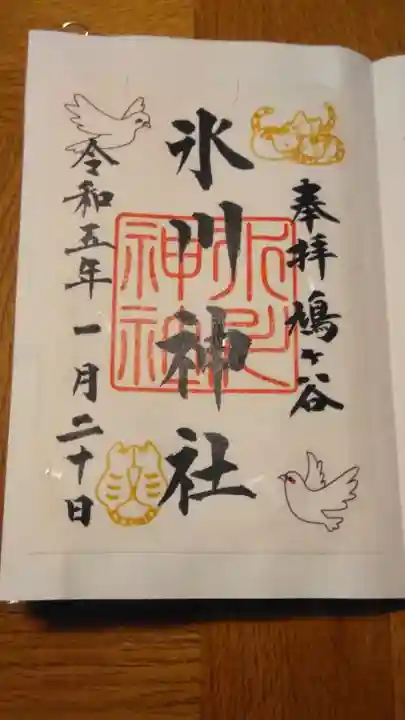 奉拝 鳩ヶ谷
氷川神社
令和五年 一月二十日
氷川神社